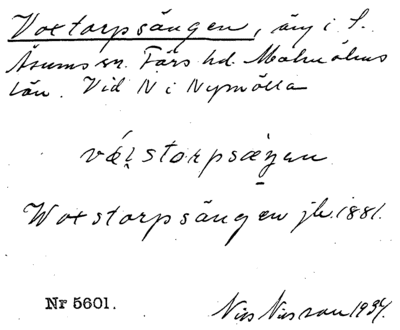 Voxtorpsängen, äng i S.
Åsums sn. Färs hd. Malmöhus
län. Vid N i Nymölla
Woxstorpsängen jb. 1881.
Nr 5601.
Nils Nilsson 1934.